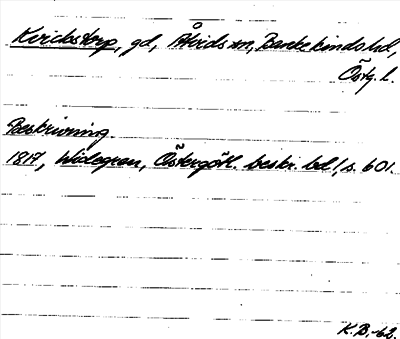 Kvickstorp, gd, Åtvids sn, Bankekinds hd,
Östg. l.
Beskrivning.
1817, Widegren, Östergötl. beskr. bd 1, s. 601.
K.B.-62.